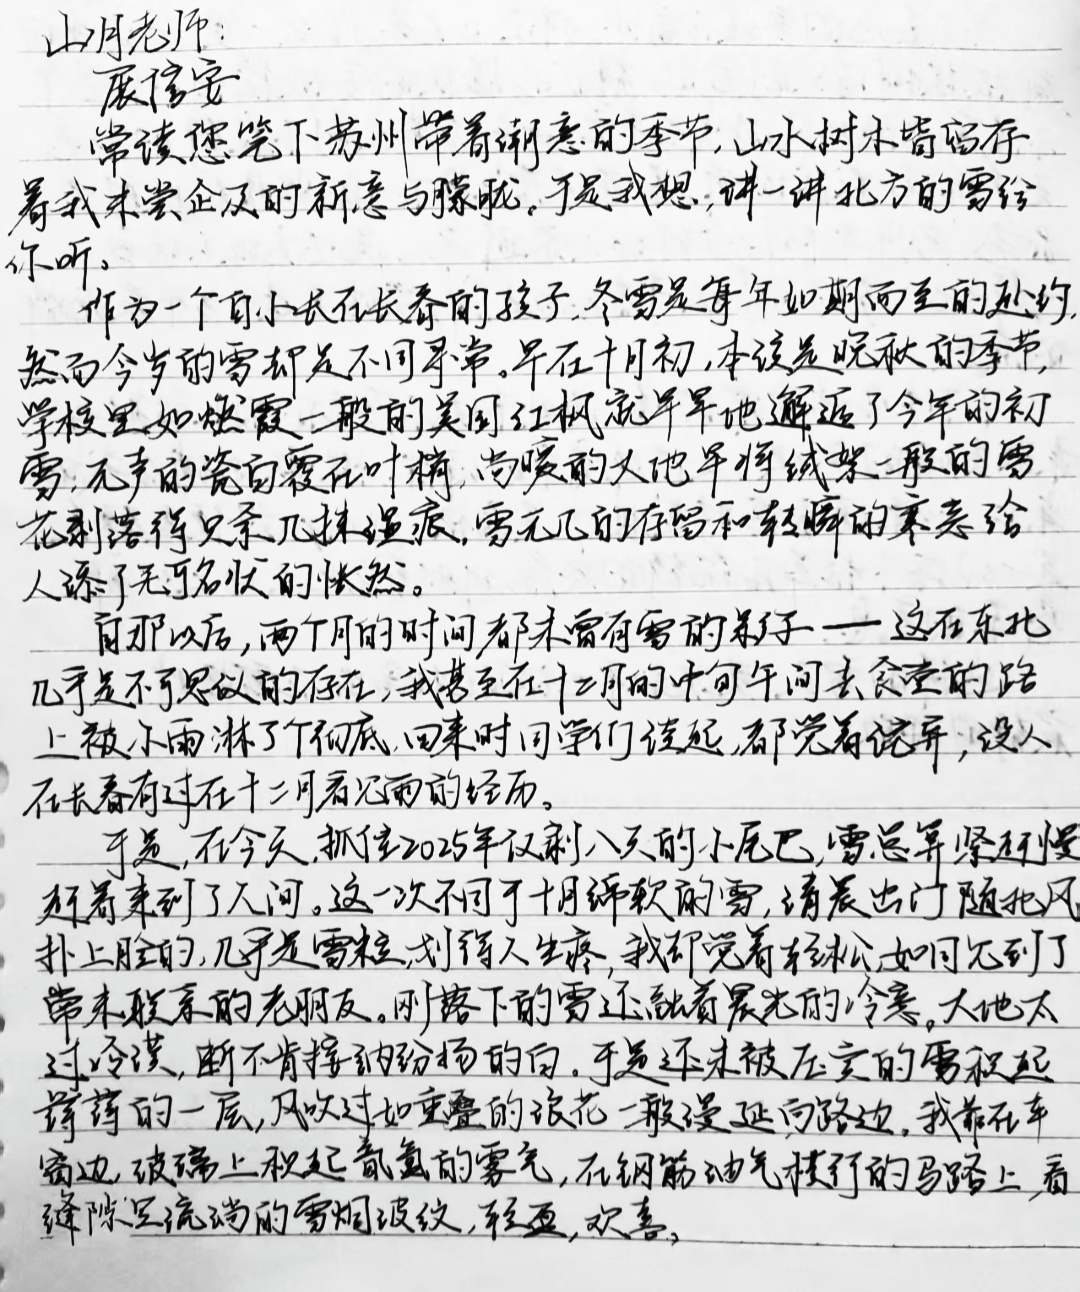 山月老师：
展信安
常读您笔下苏州带着潮意的季节，山水树木皆留存
着我未尝企及的新意与朦胧。于是我想，讲一讲北方的雪给
你听。
作为一个自小长在长春的孩子，冬雪是每年如期而至的赴约，
然而今岁的雪却是不同寻常。早在十月初，本该是晚秋的季节，
学校里如燃霞一般的美国红枫就早早地邂逅了今年的初
雪，无声的瓷白覆在叶梢，尚暖的大地早将绒絮一般的雪
花剥落得只余几抹湿痕。雪无几的存留和转瞬的寒意给
人添了无可名状的怅然。
自那以后，两个月的时间都未曾有雪的影子——这在东北
几乎是不可思议的存在，我甚至在十二月的中旬午间去食堂的路
上被小雨淋了个彻底，回来时同学们谈起，都觉着诧异，没人
在长春有过在十二月看见雨的经历。
于是，在今天，抓住2025年仅剩八天的小尾巴，雪总算紧赶慢
赶着来到了人间。这一次不同于十月绵软的雪，清晨出门随北风
扑上脸的，几乎是雪粒，划得人生疼，我却觉着轻松，如同见到了
常未联系的老朋友。刚落下的雪还融着晨光的冷意。大地太
过冷漠，断不肯接纳纷扬的白。于是还未被压实的雪积起
薄薄的一层，风吹过如重叠的浪花一般漫延向路边。我靠在车
窗边，玻璃上积起氤氲的雾气，在钢筋油气横行的马路上，看
缝隙里流淌的雪烟波纹，轻盈，欢喜。